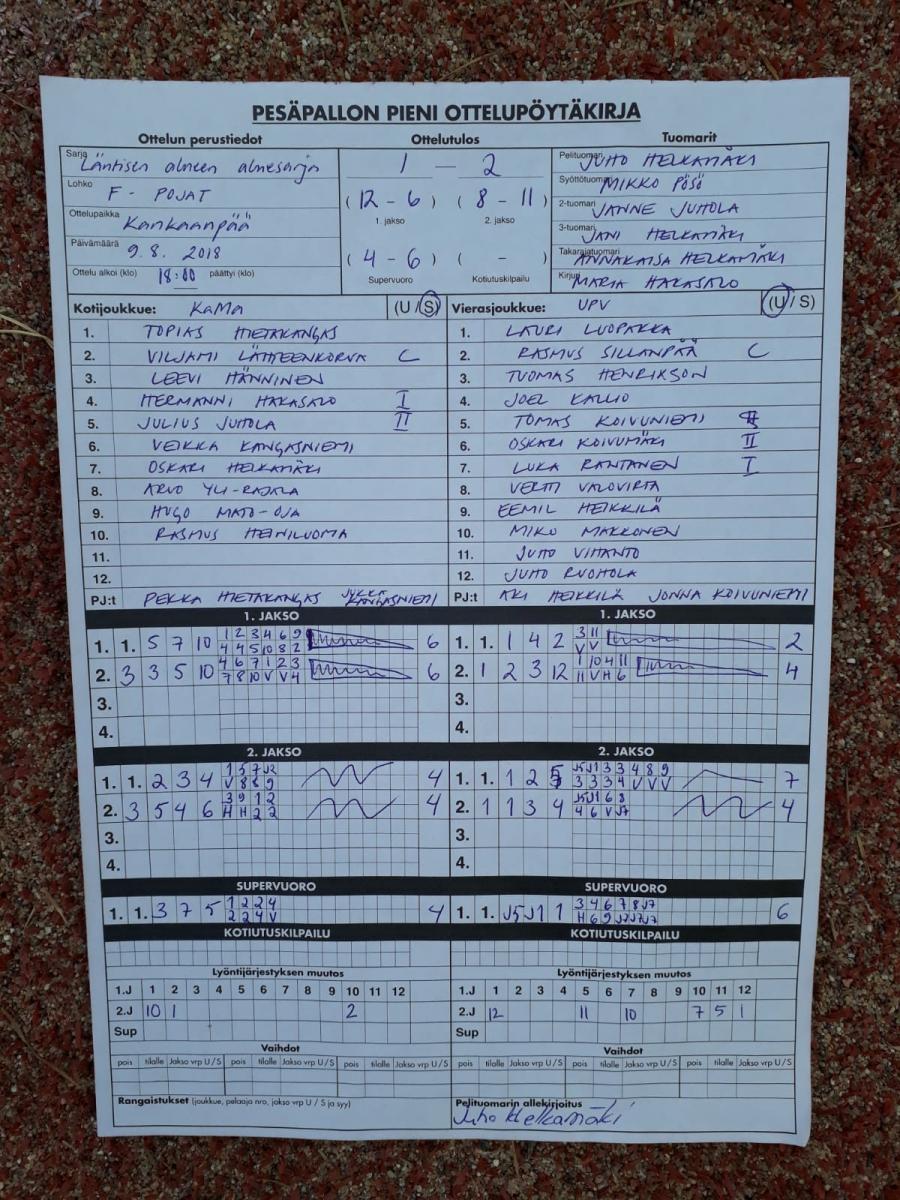 PESÄPALLON PIENI OTTELUPÖYTÄKIRJA
Ottelun perustiedot Ottelutulos Tuomarit
Sarja Läntisen alueen aluesarja
Lohko F - POJAT
Ottelupaikka Kankaanpää
Päivämäärä 9.8. 2018
Ottelu alkoi (klo) 18:00 päättyi (klo)
1 - 2
(12 - 6) (8 - 11)
1. jakso 2. jakso
(4 - 6) ( - )
Supervuoro Kotiutuskilpailu
Pelituomari JUHO HELKAMÄKI
Syöttötuomari MIKKO PÖSÖ
2-tuomari JANNE JUHOLA
3-tuomari JANI HELKAMÄKI
Takarajatuomari ANNAKAISA HELKAMÄKI
Kirjuri MARIA HAKASALO
Kotijoukkue: KaMa (U / S)
1. TOPIAS HIETAKANGAS
2. VILJAMI LÄHTEENKORVA C
3. LEEVI HÄNNINEN
4. HERMANNI HAKASALO I
5. JULIUS JUHOLA II
6. VEIKKA KANGASNIEMI
7. OSKARI HELKAMÄKI
8. ARVO YLI-RAJALA
9. HUGO MATO-OJA
10. RASMUS HEINILUOMA
11.
12.
PJ:t PEKKA HIETAKANGAS JUKKA KANGASNIEMI
Vierasjoukkue: UPV (U / S)
1. LAURI LUOPAKKA
2. RASMUS SILLANPÄÄ C
3. TUOMAS HENRIKSON
4. JOEL KALLIO
5. TOMAS KOIVUNIEMI
6. OSKARI KOIVUMÄKI II
7. LUKA RANTANEN I
8. VERTTI VALOVIRTA
9. EEMIL HEIKKILÄ
10. MIKO MAKKONEN
11. JUHO VIHANTO
12. JUHO RUOHOLA
PJ:t AKI HEIKKILÄ JONNA KOIVUNIEMI
1. JAKSO
1. 1. 5 7 10 1 2 3 4 6 9 6
4 4 5 10 8 2
2. 3 3 5 10 4 6 7 1 2 3 6
7 8 10 V V 4
3.
4.
1. JAKSO
1. 1. 1 4 2 3 11 2
V V
2. 1 2 3 12 1 10 4 11 4
11 V H 6
3.
4.
2. JAKSO
1. 1. 2 3 4 1 5 7 J2 4
V 8 8 9
2. 3 5 4 6 3 9 1 2 4
H H 2 2
3.
4.
2. JAKSO
1. 1. 1 2 5 J5 J1 3 3 4 8 9 7
3 3 3 4 V V V
2. 1 1 3 4 J5 J1 6 8 4
4 6 V J7
3.
4.
SUPERVUORO
1. 1. 3 7 5 1 2 2 4 4
2 2 4 V
SUPERVUORO
1. 1. J5 J1 1 3 4 6 7 8 J7 6
H 6 9 J7 J7 J7
KOTIUTUSKILPAILU
KOTIUTUSKILPAILU
Lyöntijärjestyksen muutos
1.J 1 2 3 4 5 6 7 8 9 10 11 12
2.J 10 1 2
Sup
Lyöntijärjestyksen muutos
1.J 1 2 3 4 5 6 7 8 9 10 11 12
2.J 12 11 10 7 5 1
Sup
Vaihdot
pois tilalle Jakso vrp U / S pois tilalle Jakso vrp U / S pois tilalle Jakso vrp U / S
Vaihdot
pois tilalle Jakso vrp U / S pois tilalle Jakso vrp U / S pois tilalle Jakso vrp U / S
Rangaistukset (joukkue, pelaaja nro, jakso vrp U / S ja syy)
Pelituomarin allekirjoitus
Juho Helkamäki